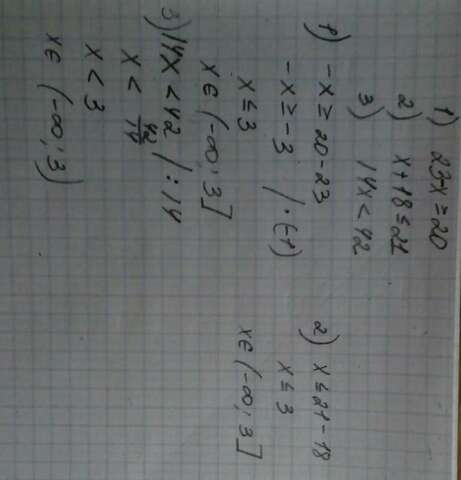 1) 23-x ≥ 20
2) x+18 ≤ 21
3) 14x < 42
1) -x ≥ 20-23
-x ≥ -3 / ·(-1)
x ≤ 3
x ∈ (-∞; 3]
2) x ≤ 21-18
x ≤ 3
x ∈ (-∞; 3]
3) 14x < 42 / :14
x < 42/14
x < 3
x ∈ (-∞; 3)